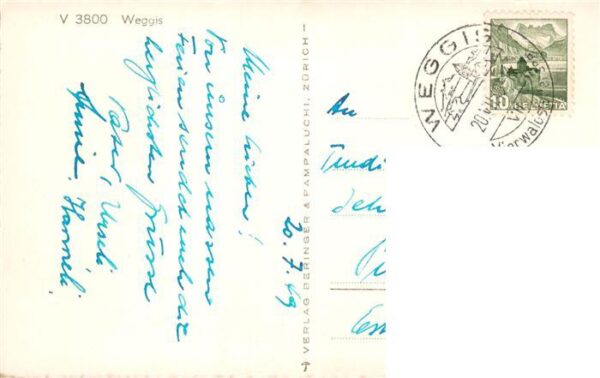 V 3800 Weggis
20.7.49
Meine Lieben!
Von unsern nassen
Ferien sendet euch die
herzlichsten Grüsse
Vater, Urseli
Annie, Hanneli
VERLAG BERINGER & PAMPALUCHI, ZÜRICH
WEGGIS
20
Vierwalds
10
HELVETIA
An
Trudi